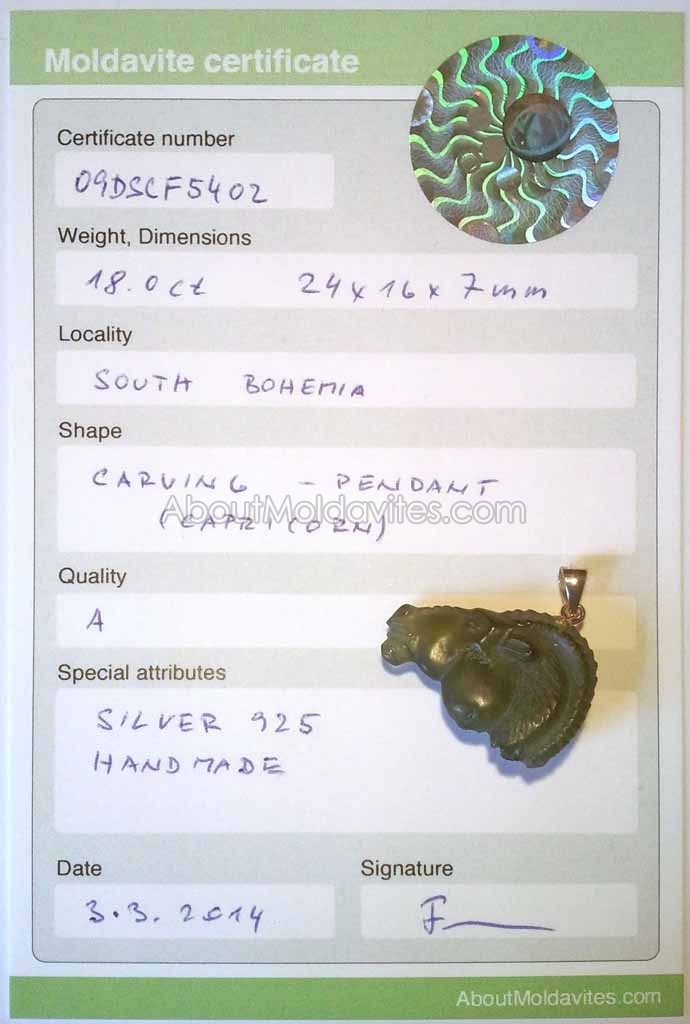 Moldavite certificate
Certificate number
09DSCF5402
Weight, Dimensions
18.0 ct 24 x 16 x 7 mm
Locality
SOUTH BOHEMIA
Shape
CARVING - PENDANT
AboutMoldavites.com
(CAPRICORN)
Quality
A
Special attributes
SILVER 925
HANDMADE
Date Signature
3.3.2014
AboutMoldavites.com